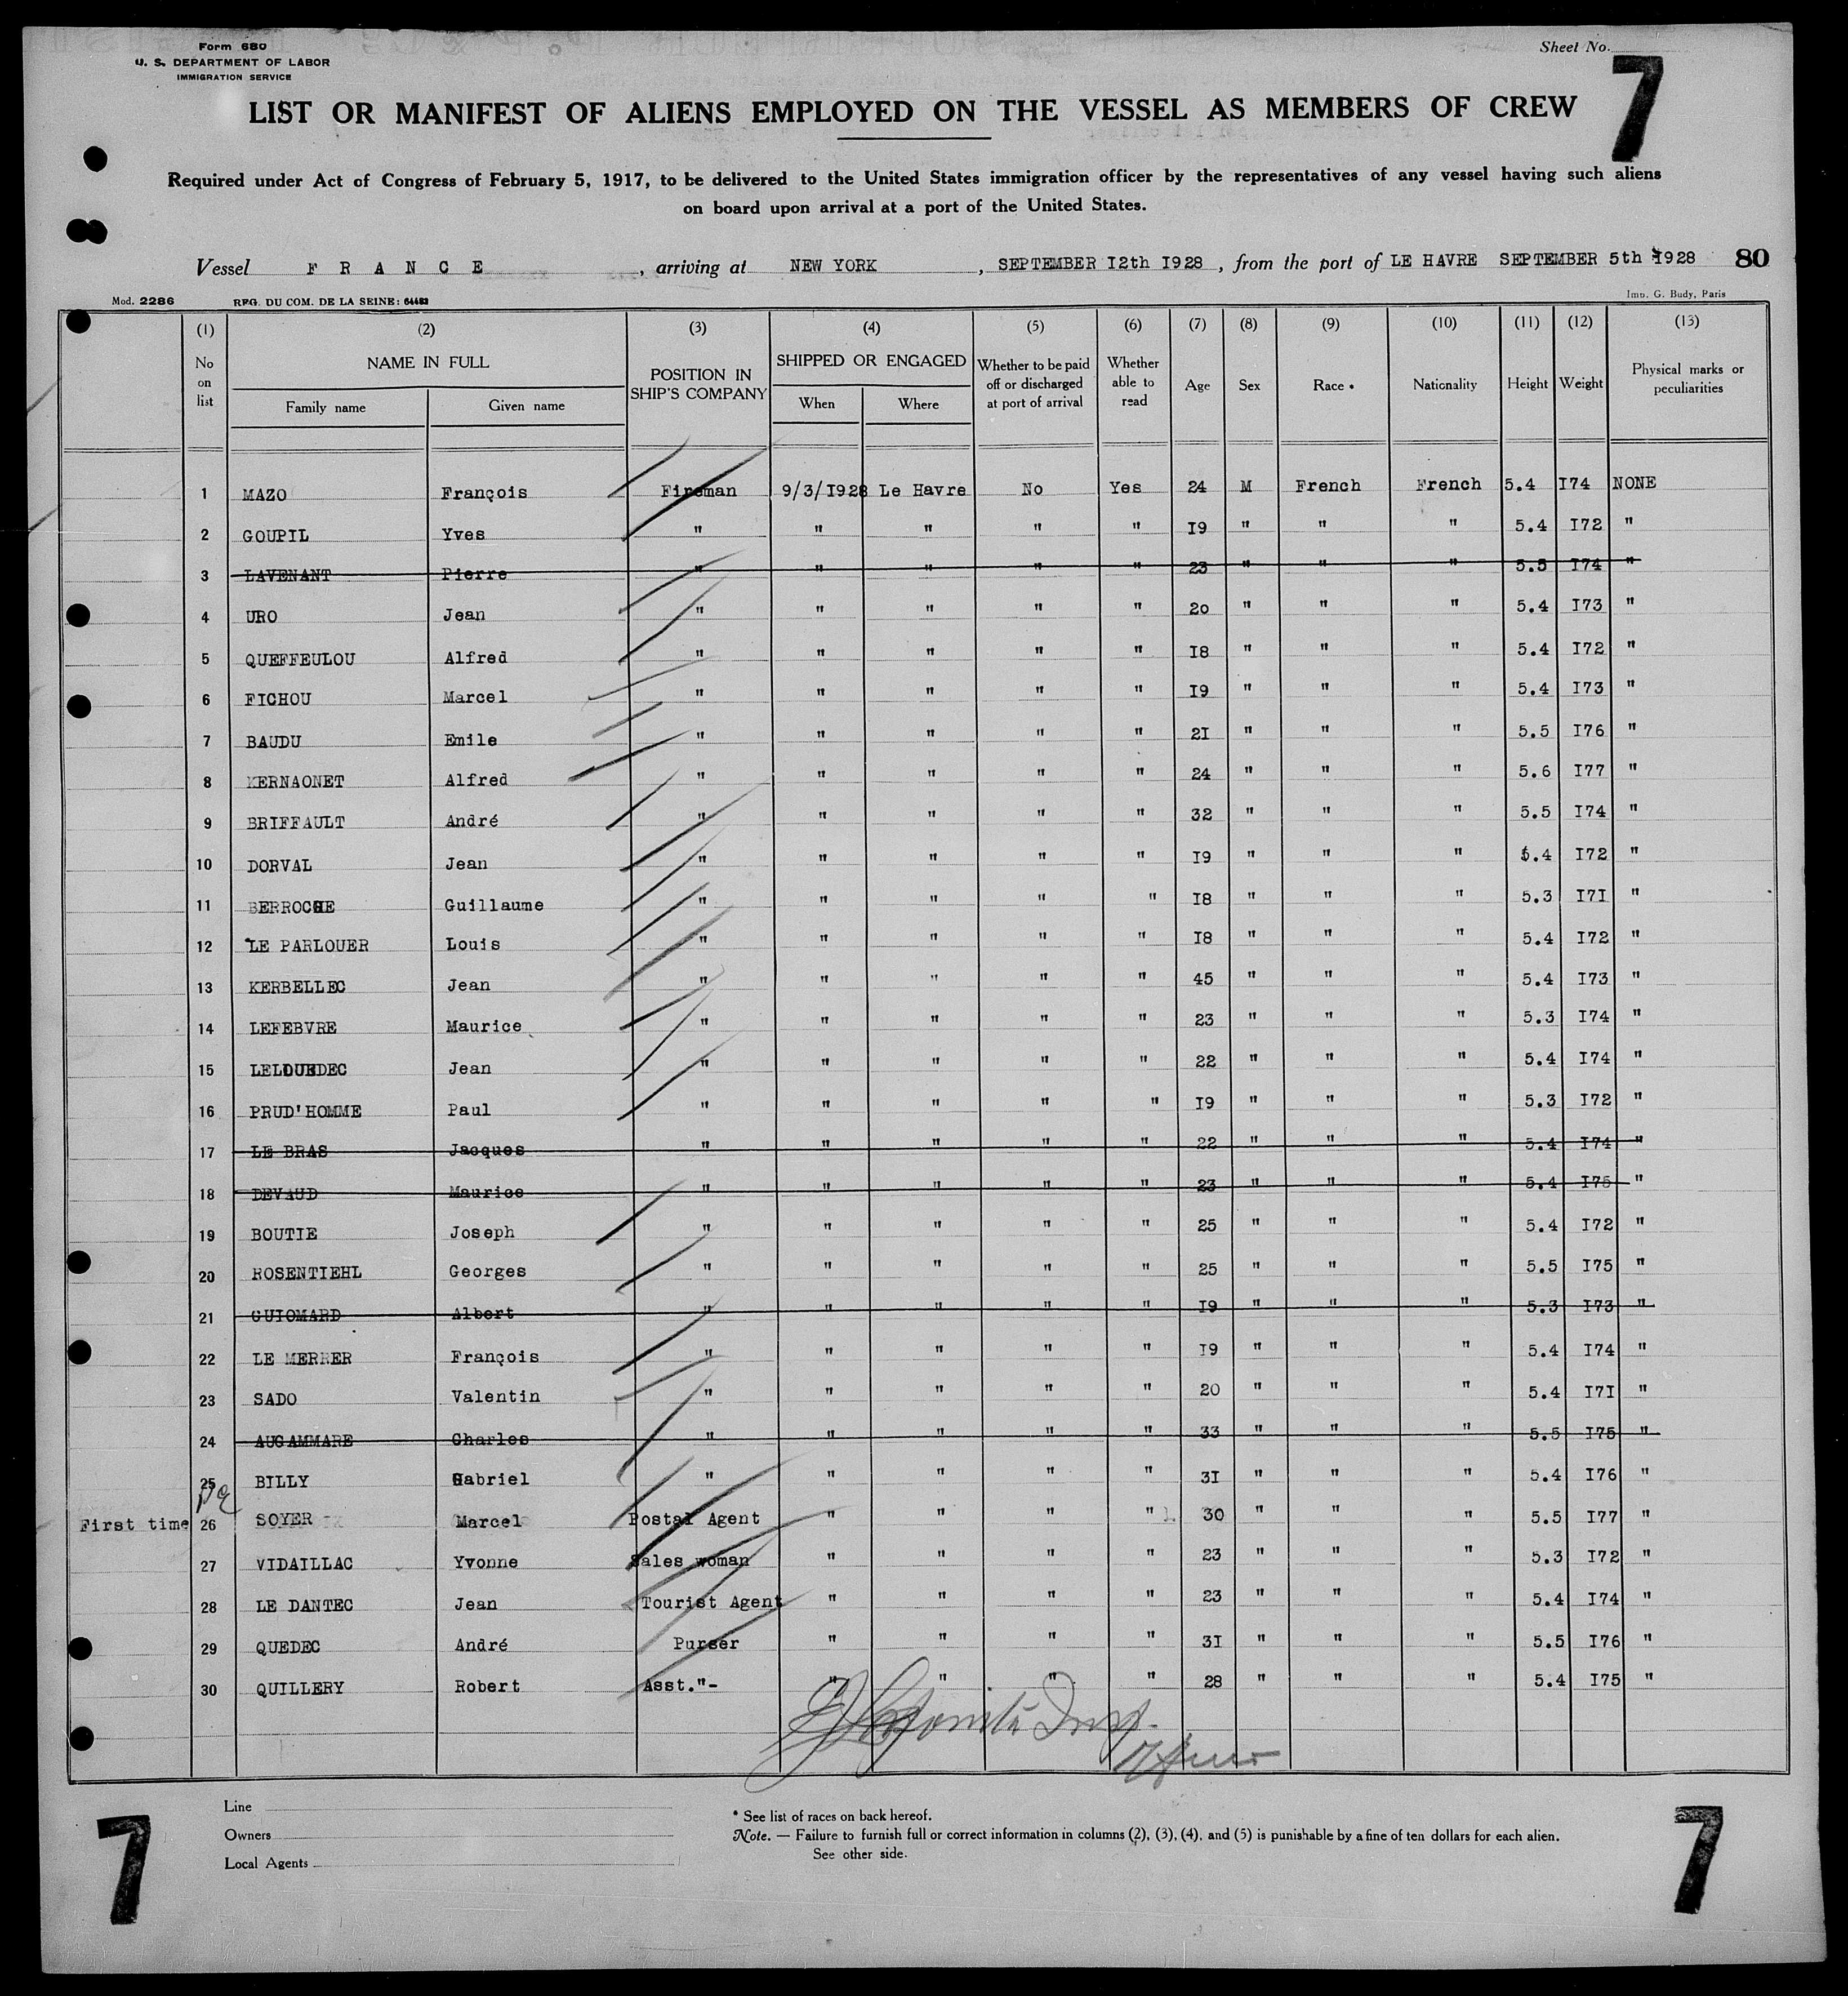 Form 680
U. S. DEPARTMENT OF LABOR
IMMIGRATION SERVICE
Sheet No.
7
LIST OR MANIFEST OF ALIENS EMPLOYED ON THE VESSEL AS MEMBERS OF CREW
Required under Act of Congress of February 5, 1917, to be delivered to the United States immigration officer by the representatives of any vessel having such aliens
on board upon arrival at a port of the United States.
Vessel F R A N C E , arriving at NEW YORK , SEPTEMBER I2th I928 , from the port of LE HAVRE SEPTEMBER 5th I928 80
Mod. 2286 REG. DU COM. DE LA SEINE: 64483 Imp. G. Budy, Paris
(1) (2) (3) (4) (5) (6) (7) (8) (9) (10) (11) (12) (13)
No on list NAME IN FULL Family name Given name POSITION IN SHIP'S COMPANY SHIPPED OR ENGAGED When Where Whether to be paid off or discharged at port of arrival Whether able to read Age Sex Race * Nationality Height Weight Physical marks or peculiarities
1 MAZO François Fireman 9/3/I928 Le Havre No Yes 24 M French French 5.4 I74 NONE
2 GOUPIL Yves " " " " " I9 " " " 5.4 I72 "
3 LAVENANT Pierre " " " " " 23 " " " 5.5 I74 "
4 URO Jean " " " " " 20 " " " 5.4 I73 "
5 QUEFFEULOU Alfred " " " " " I8 " " " 5.4 I72 "
6 FICHOU Marcel " " " " " I9 " " " 5.4 I73 "
7 BAUDU Emile " " " " " 2I " " " 5.5 I76 "
8 KERNAONET Alfred " " " " " 24 " " " 5.6 I77 "
9 BRIFFAULT André " " " " " 32 " " " 5.5 I74 "
10 DORVAL Jean " " " " " I9 " " " 5.4 I72 "
11 BERROCHE Guillaume " " " " " I8 " " " 5.3 I7I "
12 LE PARLOUER Louis " " " " " I8 " " " 5.4 I72 "
13 KERBELLEC Jean " " " " " 45 " " " 5.4 I73 "
14 LEFEBVRE Maurice " " " " " 23 " " " 5.3 I74 "
15 Jean " " " " " 22 " " " 5.4 I74 "
16 PRUD'HOMME Paul " " " " " I9 " " " 5.3 I72 "
17 LE BRAS Jacques " " " " " 22 " " " 5.4 I74 "
18 DEVAUD Maurice " " " " " 23 " " " 5.4 I75 "
19 BOUTIE Joseph " " " " " 25 " " " 5.4 I72 "
20 ROSENTIEHL Georges " " " " " 25 " " " 5.5 I75 "
21 GUIOMARD Albert " " " " " I9 " " " 5.3 I73 "
22 LE MERRER François " " " " " I9 " " " 5.4 I74 "
23 SADO Valentin " " " " " 20 " " " 5.4 I7I "
24 AUGAMMARE Charles " " " " " 33 " " " 5.5 I75 "
25 BILLY Gabriel " " " " " 3I " " " 5.4 I76 "
First time 26 SOYER Marcel Postal Agent " " " " 30 " " " 5.5 I77 "
27 VIDAILLAC Yvonne Sales woman " " " " 23 " " " 5.3 I72 "
28 LE DANTEC Jean Tourist Agent " " " " 23 " " " 5.4 I74 "
29 QUEDEC André Purser " " " " 3I " " " 5.5 I76 "
30 QUILLERY Robert Asst."- " " " " 28 " " " 5.4 I75 "
Line
Owners
Local Agents
* See list of races on back hereof.
Note. — Failure to furnish full or correct information in columns (2), (3), (4), and (5) is punishable by a fine of ten dollars for each alien.
See other side.
7
7